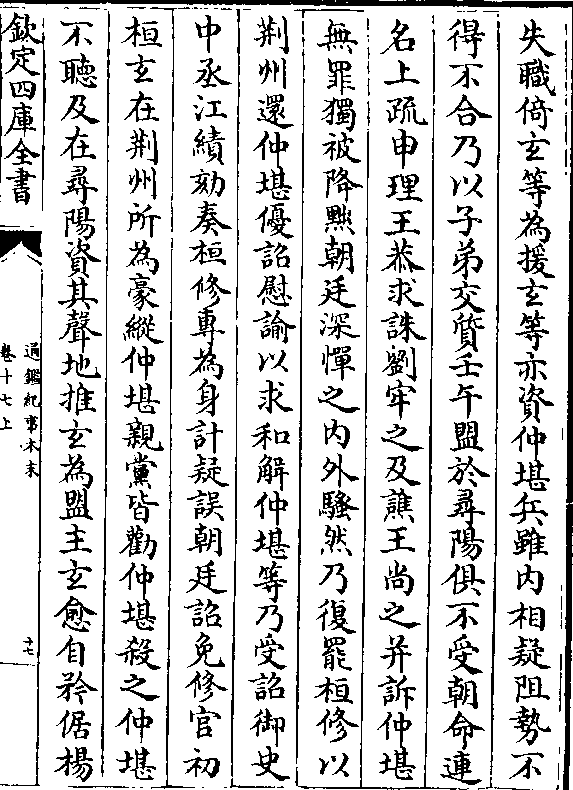 失職倚玄等為援玄等亦資仲堪兵雖内相疑阻勢不
得不合乃以子弟交質壬午盟於尋陽俱不受朝命連
名上疏申理王恭求誅劉牢之及譙王尚之并訴仲堪
無罪獨被降黜朝廷深憚之内外騷然乃復罷桓修以
荆州還仲堪優詔慰諭以求和解仲堪等乃受詔御史
中丞江績劾奏桓修專為身計疑誤朝廷詔免修官初
桓玄在荆州所為豪縱仲堪親黨皆勸仲堪殺之仲堪
不聽及在尋陽資其聲地推玄為盟主玄愈自矜倨楊
欽定四庫全書
通鑑紀事本末
卷十七上
十七